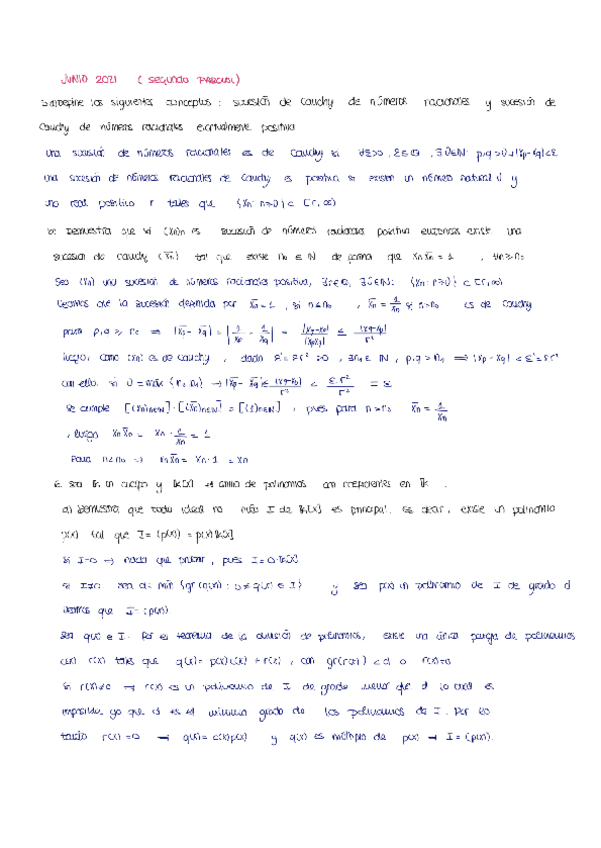 JUNIO 2021 (SEGUNDO PARCIAL)
Define los siguientes conceptos: sucesión de Cauchy de números racionales y sucesión de
Cauchy de números racionales estrictamente positiva
una sucesión de números racionales es de Cauchy si ∀ε>0, ε∈Q, ∃ν∈ℕ: p,q>ν → |xp-xq|<ε
una sucesión de números racionales de Cauchy es positiva si existen un número natural ν y
uno real positivo r tales que {xn: n≥ν} ⊂ [r,∞)
b) Demuestra que si (xn) es sucesión de números racionales positiva entonces existe una
sucesión de Cauchy (x̄n) tal que existe n₀ ∈ ℕ de forma que xn x̄n = 1 , ∀n≥n₀
Sea (xn) una sucesión de números racionales positiva, ∃r∈Q, ∃ν∈ℕ: {xn: n≥ν} ⊂ [r,∞)
Veamos que la sucesión definida por x̄n=1 , si n≤n₀ , x̄n = 1/xn si n>n₀ es de Cauchy
para p,q ≥ n₀ ⇒ |x̄p - x̄q| = |1/xp - 1/xq| = |xp-xq|/|xpxq| ≤ |xq-xp|/r²
luego, como (xn) es de Cauchy , dado ε'=εr² >0 , ∃n₁∈ℕ , p,q>n₁ ⇒ |xp-xq| < ε'=εr²
con ello, si ν = máx {n₀,n₁} → |x̄p - x̄q| ≤ |xq-xp|/r² < ε·r²/r² = ε
se cumple [(xn)n∈ℕ]·[(x̄n)n∈ℕ] = [(1)n∈ℕ] , pues para n>n₀ x̄n = 1/xn
, luego xn x̄n = xn · 1/xn = 1
Para n≤n₀ → xn x̄n = xn·1 = xn
6. Sea 𝕜 un cuerpo y 𝕜[x] el anillo de polinomios con coeficientes en 𝕜 .
a) Demuestra que todo ideal no I de 𝕜[x] es principal. Es decir, existe un polinomio
p(x) tal que I = (p(x)) = p(x)𝕜[x]
si I=0 → nada que probar , pues I=0·𝕜[x]
si I≠0 sea d= mín {gr(q(x)): 0≠q(x) ∈ I} y sea p(x) un polinomio de I de grado d
veamos que I=(p(x))
Sea q(x) ∈ I. Por el teorema de la división de polinomios, existe una única pareja de polinomios
c(x) r(x) tales que q(x)= p(x)c(x) + r(x) , con gr(r(x)) < d o r(x)=0
Si r(x)≠0 → r(x) es un polinomio de I de grado menor que d lo cual es
imposible ya que d es el mínimo grado de los polinomios de I . Por lo
tanto r(x)=0 → q(x)= c(x)p(x) y q(x) es múltiplo de p(x) → I=(p(x)).